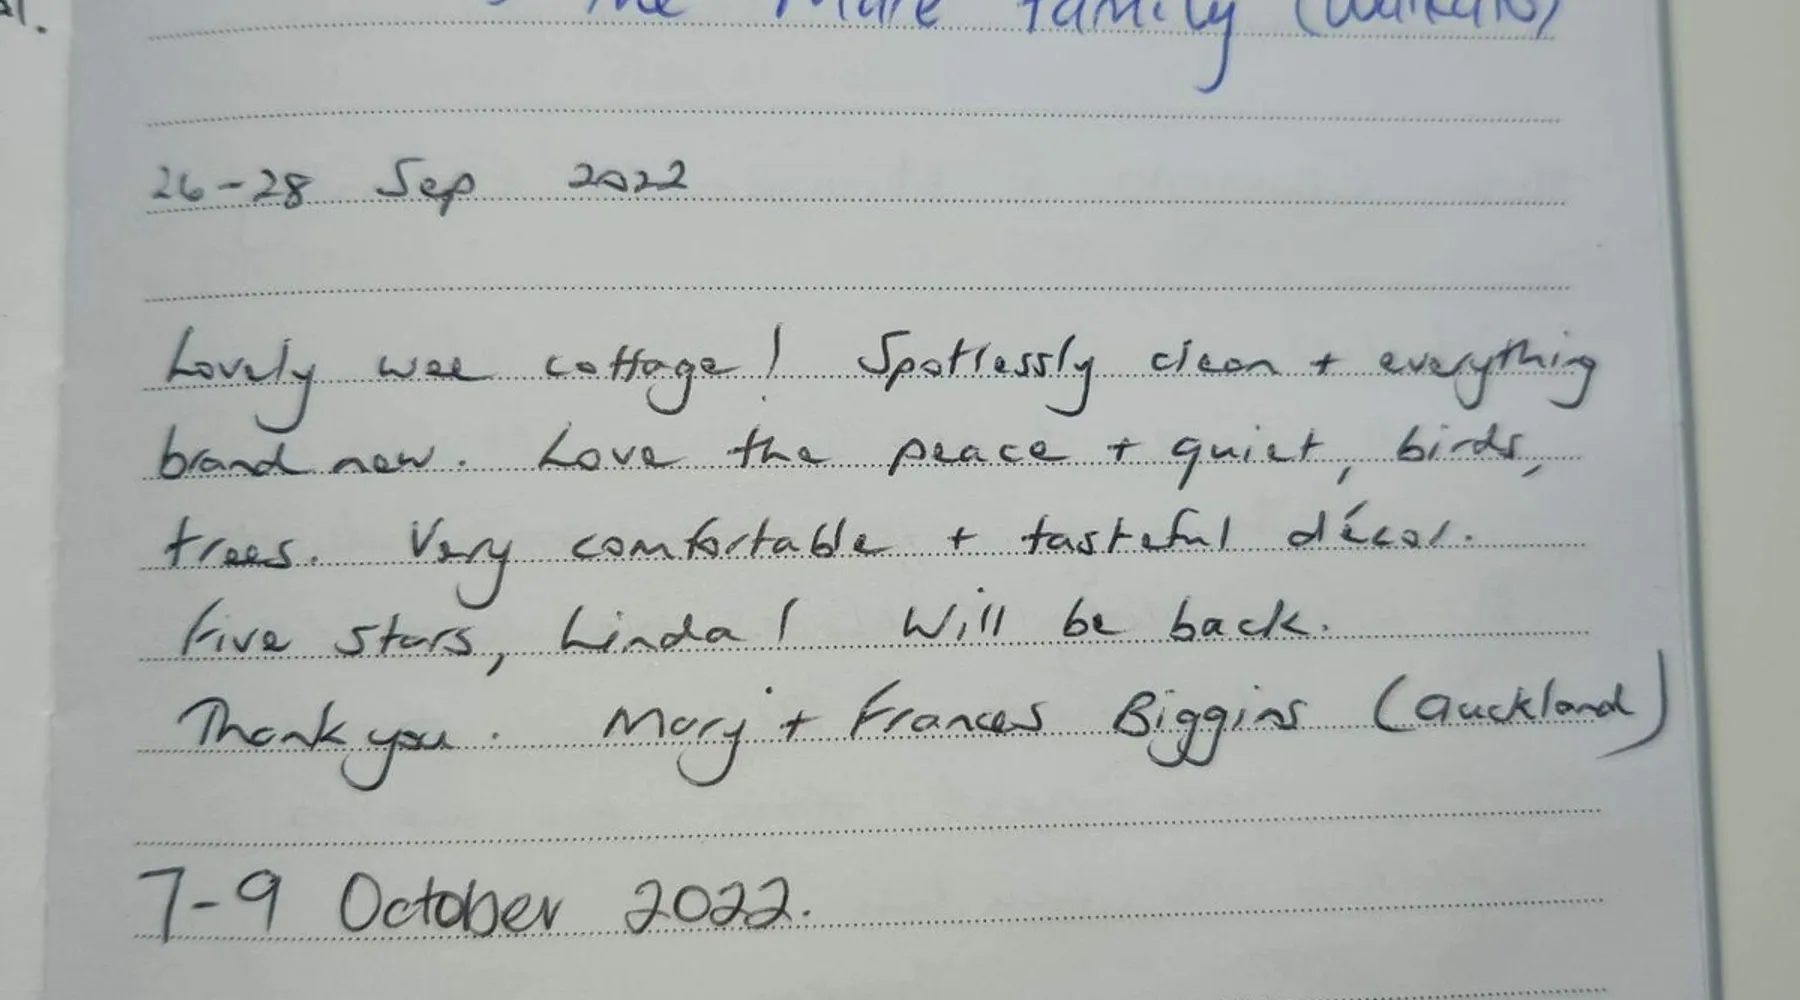 the Muir family (Waikato)
26-28 Sep 2022
Lovely wee cottage! Spotlessly clean + everything
brand new. Love the peace + quiet, birds,
trees. Very comfortable + tasteful décor.
Five stars, Linda! Will be back.
Thank you. Mary + Frances Biggins (Auckland)
7-9 October 2022.